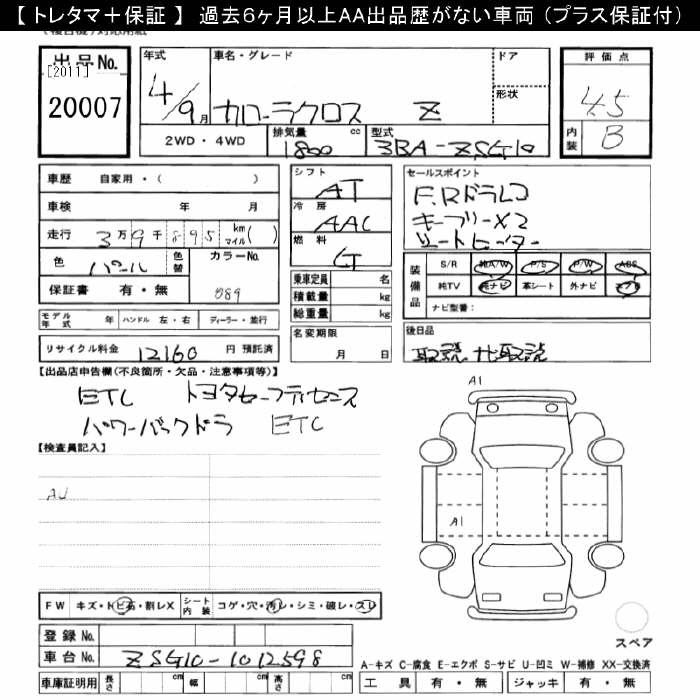 【 トレタマ＋保証 】 過去6ヶ月以上AA出品歴がない車両 (プラス保証付)
出品No.
[2011]
20007
年式 車名・グレード ドア
4/9月 カローラクロス Z
形状
2WD・4WD 排気量 cc 型式
1800 3BA-ZSG10
評価点
4.5
内装 B
車歴 自家用・( )
車検 年 月
走行 3万9千895 km マイル ( )
色 パール 色替 カラーNo.
保証書 有・無 089
モデル年式 年 ハンドル 左・右 ディーラー・並行
リサイクル料金 12160 円 預託済
シフト AT
冷房 AAC
燃料 G
乗車定員 名
積載量 kg
総重量 kg
名変期限
月 日
セールスポイント
F.Rドラレコ
キーフリーX2
シートヒーター
装備品 S/R 純A/W P/S P/W ABS
純TV 純ナビ 革シート 外ナビ エアB
ナビ型番:
後日品
取説 ナビ取説
【出品店申告欄(不良箇所・欠品・注意事項等)】
ETC トヨタセーフティセンス
パワーバックドラ ETC
【検査員記入】
AU
A1
A1
FW キズ・トビ石・割レX シート内装 コゲ・穴・汚レ・シミ・破レ・スレ
登録No.
車台No. ZSG10-1012598
車庫証明用 長さ cm 幅 cm 高さ cm
スペア
A-キズ C-腐食 E-エクボ S-サビ U-凹ミ W-補修 XX-交換済
工具 有・無 ジャッキ 有・無